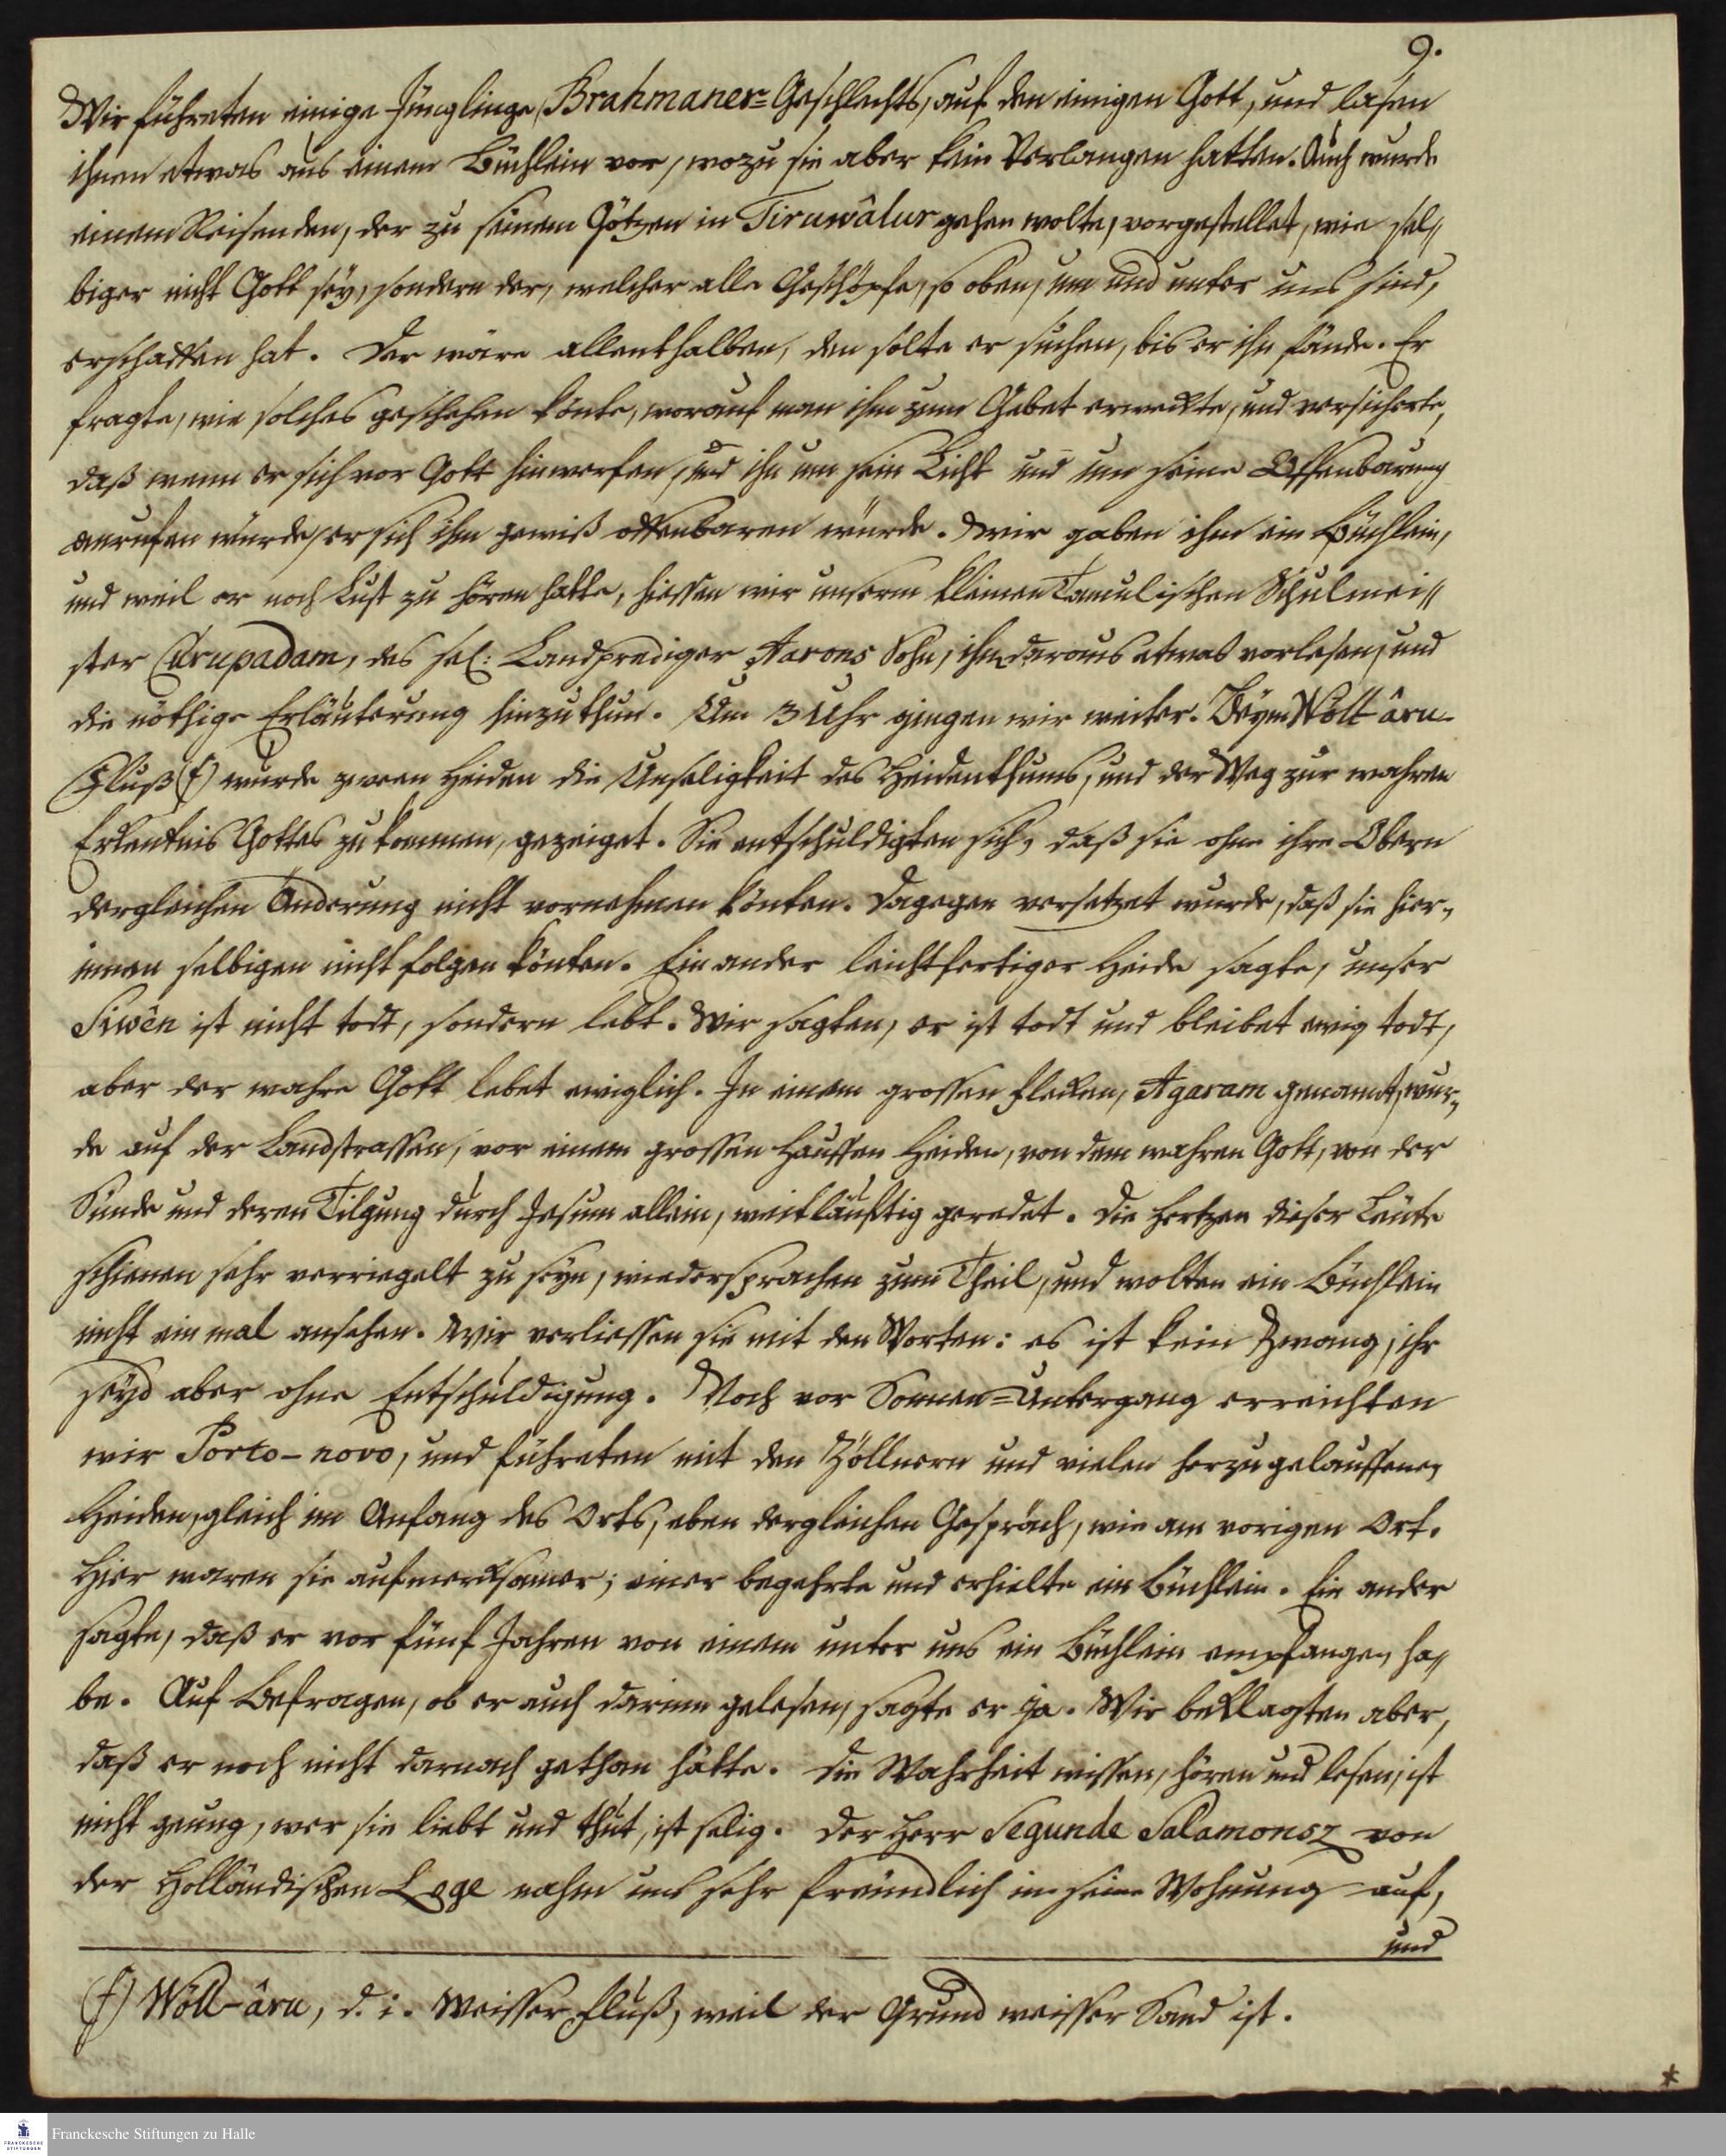 9.
Wir führeten einige Jünglinge, Brahmaner-Geschlechts, auf den einigen Gott, und lasen
ihnen etwas aus einem Büchlein vor, wozu sie aber kein Verlangen hatten. Auch wurde
einem Reisenden, der zu seinem Götzen in Tiruwâlur gehen wolte, vorgestellet, wie sel-
biger nicht Gott sey, sondern der, welcher alle Geschöpfe, so oben, um und unter uns sind,
erschaffen hat. Der wäre allenthalben, den solte er suchen, bis er ihn fände. Er
fragte, wie solches geschehen könte, worauf man ihn zum Gebet erweckte, und versicherte,
daß wenn er sich vor Gott hinwerfen, und ihn um sein Licht und um seine Offenbarung
anrufen würde, er sich ihm gewiß offenbaren würde. Wir gaben ihm ein Büchlein,
und weil er noch Lust zu hören hatte, hiessen wir unserm kleinen Tamulischen Schulmei-
ster Arupadam, des sel: Landprediger Aarons Sohn, ihm daraus etwas vorlesen, und
die nöthige Erläuterung hinzuthun. Um 3 Uhr gingen wir weiter. Beym Wöll-âru-
Fluß (f) wurde zween Heiden die Unseligkeit des Heidenthums, und der Weg zur wahren
Erkentnis Gottes zu kommen, gezeiget. Sie entschuldigten sich, daß sie ohne ihre Obern
dergleichen Änderung nicht vornehmen könten. Dagegen versetzet wurde, daß sie hier-
innen selbigen nicht folgen könten. Ein ander leichtfertiger Heide sagte, unser
Siwên ist nicht todt, sondern lebt. Wir sagten, er ist todt und bleibet ewig todt,
aber der wahre Gott lebet ewiglich. In einem grossen Flecken, Agaram genannt, wur-
de auf der Landstrassen, vor einem grossen Hauffen Heiden, von dem wahren Gott, von der
Sünde und deren Tilgung durch Jesum allein, weitläuftig geredet. Die Hertzen dieser Leute
schienen sehr verriegelt zu seyn, wiedersprachen zum Theil, und wolten ein Büchlein
nicht ein mal ansehen. Wir verliessen sie mit den Worten: es ist kein Zwang, ihr
seyd aber ohne Entschuldigung. Noch vor Sonnen-Untergang erreichten
wir Porto-novo, und führeten mit den Zöllnern und vielen herzugelauffenen
Heiden, gleich im Anfang des Orts, eben dergleichen Gespräch, wie am vorigen Ort.
Hier waren sie aufmercksamer; einer begehrte und erhielte ein Büchlein. Ein ander
sagte, daß er vor fünf Jahren von einem unter uns ein Büchlein empfangen ha-
be. Auf Befragen, ob er auch darinn gelesen, sagte er ja. Wir beklagten aber,
daß er noch nicht darnach gethan hätte. Die Wahrheit wissen, hören und lesen, ist
nicht genug, wer sie liebt und thut, ist selig. Der Herr Segunde Salamonsz von
der Holländischen Loge nahm uns sehr freundlich in seine Wohnung auf,
und
(f) Wöll-âru, d. i. Weisser Fluß, weil der Grund weisser Sand ist.
*
FRANCKESCHE STIFTUNGEN
Franckesche Stiftungen zu Halle